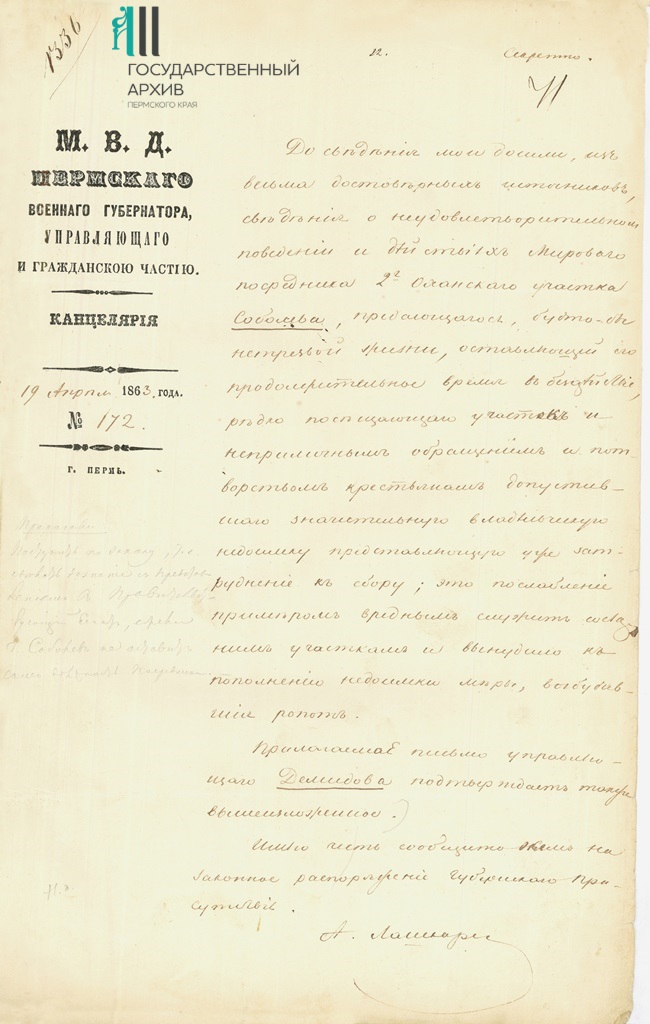 1336
ГОСУДАРСТВЕННЫЙ
АРХИВ
ПЕРМСКОГО КРАЯ
12.
Секретно.
71
М. В. Д.
ПЕРМСКАГО
ВОЕННАГО ГУБЕРНАТОРА,
УПРАВЛЯЮЩАГО
И ГРАЖДАНСКОЮ ЧАСТІЮ.
КАНЦЕЛЯРІЯ
19 Апрѣля 1863 года.
№ 172.
Г. ПЕРМЬ.
До свѣдѣнія моего дошли, изъ
весьма достовѣрныхъ источниковъ,
свѣдѣнія о неудовлетворительномъ
поведеніи и дѣйствіяхъ Мироваго
посредника 2го Оханскаго участка
Соболева, предающагося, будто-бы
нетрезвой жизни, оставляющій его
продолжительное время въ бездѣйствіе,
рѣдко посѣщающаго участокъ и
неприличнымъ обращеніемъ и пот-
ворствомъ крестьянамъ допустив-
шаго значительную владѣльческую
недоимку представляющую уже зат-
рудненіе къ сбору; это послабленіе
примѣромъ вреднымъ служитъ сосѣд-
нимъ участкамъ и вынудило къ
пополненію недоимки мѣры, возбудив-
шія ропотъ.
Прилагаемое письмо управляю-
щаго Демидова подтверждаетъ также
вышеизложенное.
Имѣю честь сообщить о семъ на
законное распоряженіе Губернскаго При-
сутствія.
А. Лашкаре